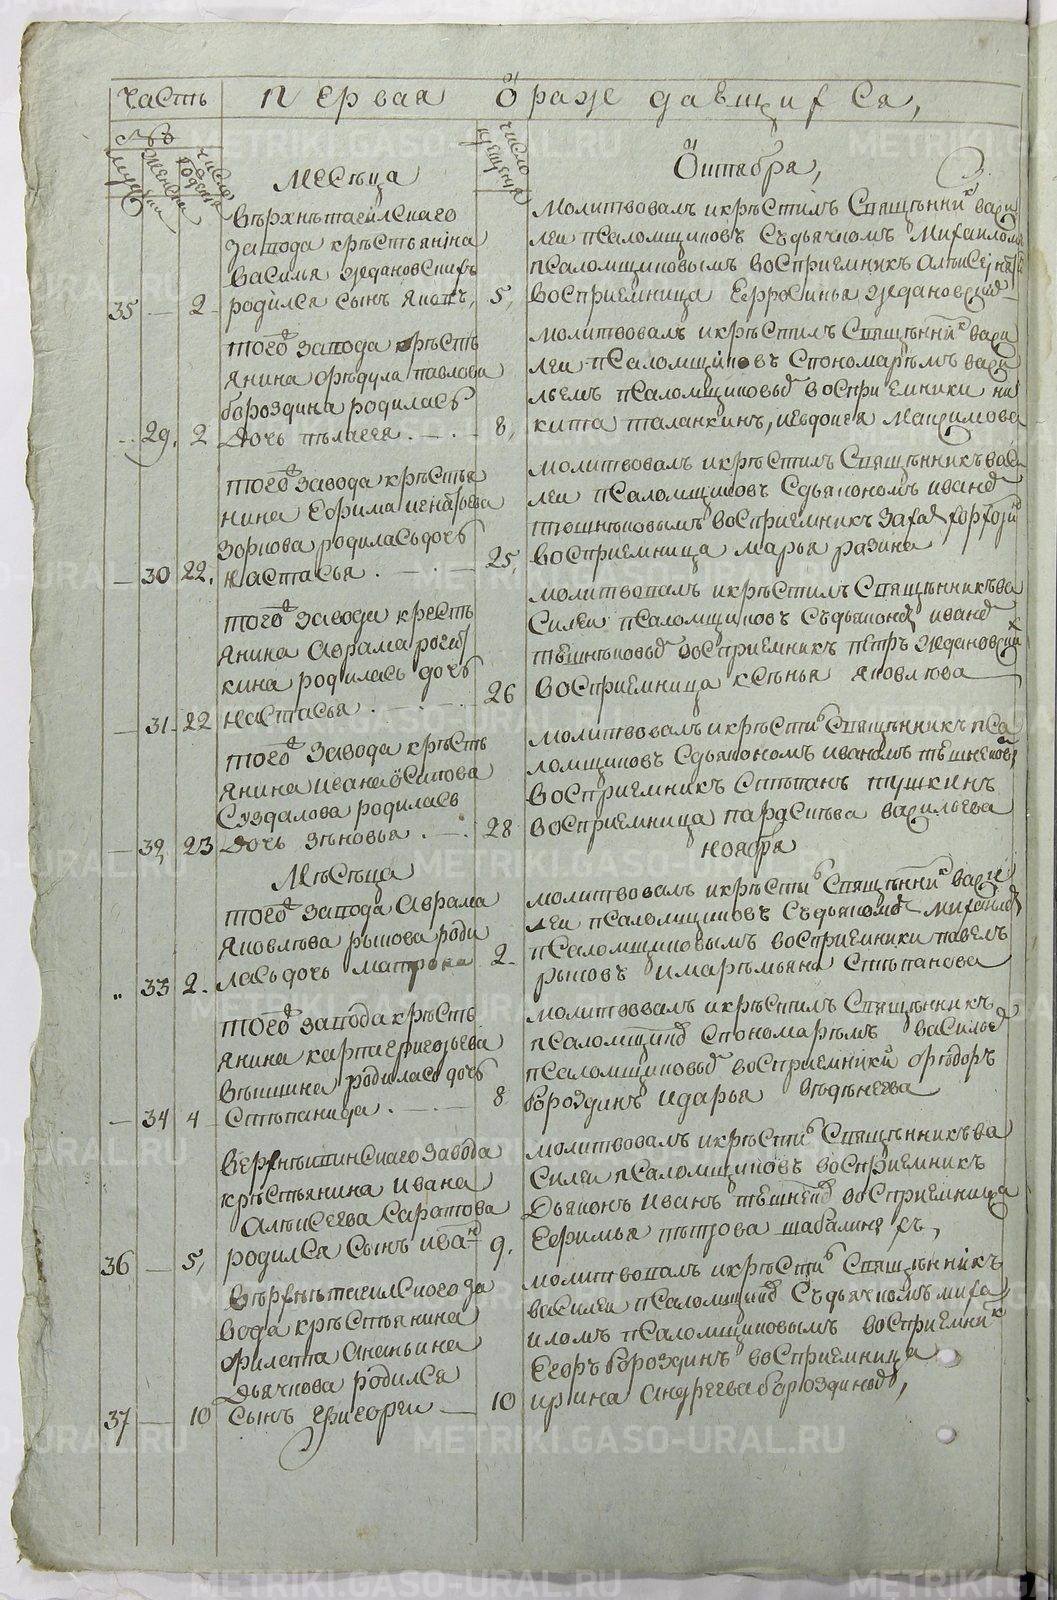 Часть первая ö раждающихся,
№ъ
мужеска
женска
число родения
Месяца
число крещения
Öктября,
Верхнетагилскаго
завода крестьянина
василья ждановскихъ
35 — 2 родился сынъ яковъ, 5,
молитвовалъ и крестилъ Священникъ васи
леи псаломщиковъ Съдьячкомъ Михаиломъ
псаломщиковымъ восприемникъ алексей
восприемница Ефросинья ждановскихъ
того завода кресть
янина федула павлова
бороздина родилась
29. 2 дочь пелагея — 8,
молитвовалъ и крестилъ Священникъ васи
леи псаломщиковъ Спономаремъ васи
льемъ псаломщиковым восприемники ни
кита таланкинъ, иевдокея максимова
того завода крестья
нина Ефима игнатьева
зорнова родилась дочь
— 30 22. настасья — 25,
молитвовалъ и крестилъ Священникъ васи
леи псаломщиковъ Сдьякономъ иваном
тешнековымъ восприемникъ захар
восприемница марья разина
того завода кресть
янина Аврама рогов
кина родилась дочь
— 31 22 настасья — 26
молитвовалъ и крестилъ Священникъ ва
силеи псаломщиковъ Съдьякономъ иваном
тешнековым восприемникъ петръ ждановских
восприемница ксенья яковлева
того завода кресть
янина ивана öсипова
Суздалова родилась
— 32, 23 дочь зеновья — 28
молитвовалъ и крести Священникъ пса
ломщиковъ Сдьякономъ иваномъ тешнековым
восприемникъ Степанъ пушкинъ
восприемница параскева васильева
Месяца
ноября
того завода Аврама
яковлева рыкова роди
33 2. лась дочь матрона 2.
молитвовалъ и крести Священникъ васи
леи псаломщиковъ Съдьякомъ михаилом
псаломщиковымъ восприемники павелъ
рыковъ имаремьяна Степанова
того завода кресть
янина карпа григорьева
вяткина родилась дочь
— 34 4 Степанида — 8
молитвовалъ и крестилъ Священникъ
псаломщик Спономаремъ васильем
псаломщиковым восприемники федоръ
бороздинъ идарья
Верхнетагилскаго завода
крестьянина ивана
алексеева Саратова
36 — 5, родился Сынъ иванъ 9.
молитвовалъ и крести Священникъ ва
Силеи псаломщиковъ восприемникъ
Дьяконъ иванъ тешнеков восприемница
Ефимья петрова шабалиныхъ,
Верхнетагилскаго за
вода крестьянина
филата ананьина
дьячкова родился
37 — 10 Сынъ григореи — 10
молитвовалъ и крести Священникъ
василеи псаломщик Съдьячкомъ миха
иломъ псаломщиковымъ восприемник
Егоръ бороздинъ восприемница
ирина андреева бороздиных,
METRIKI.GASO-URAL.RU